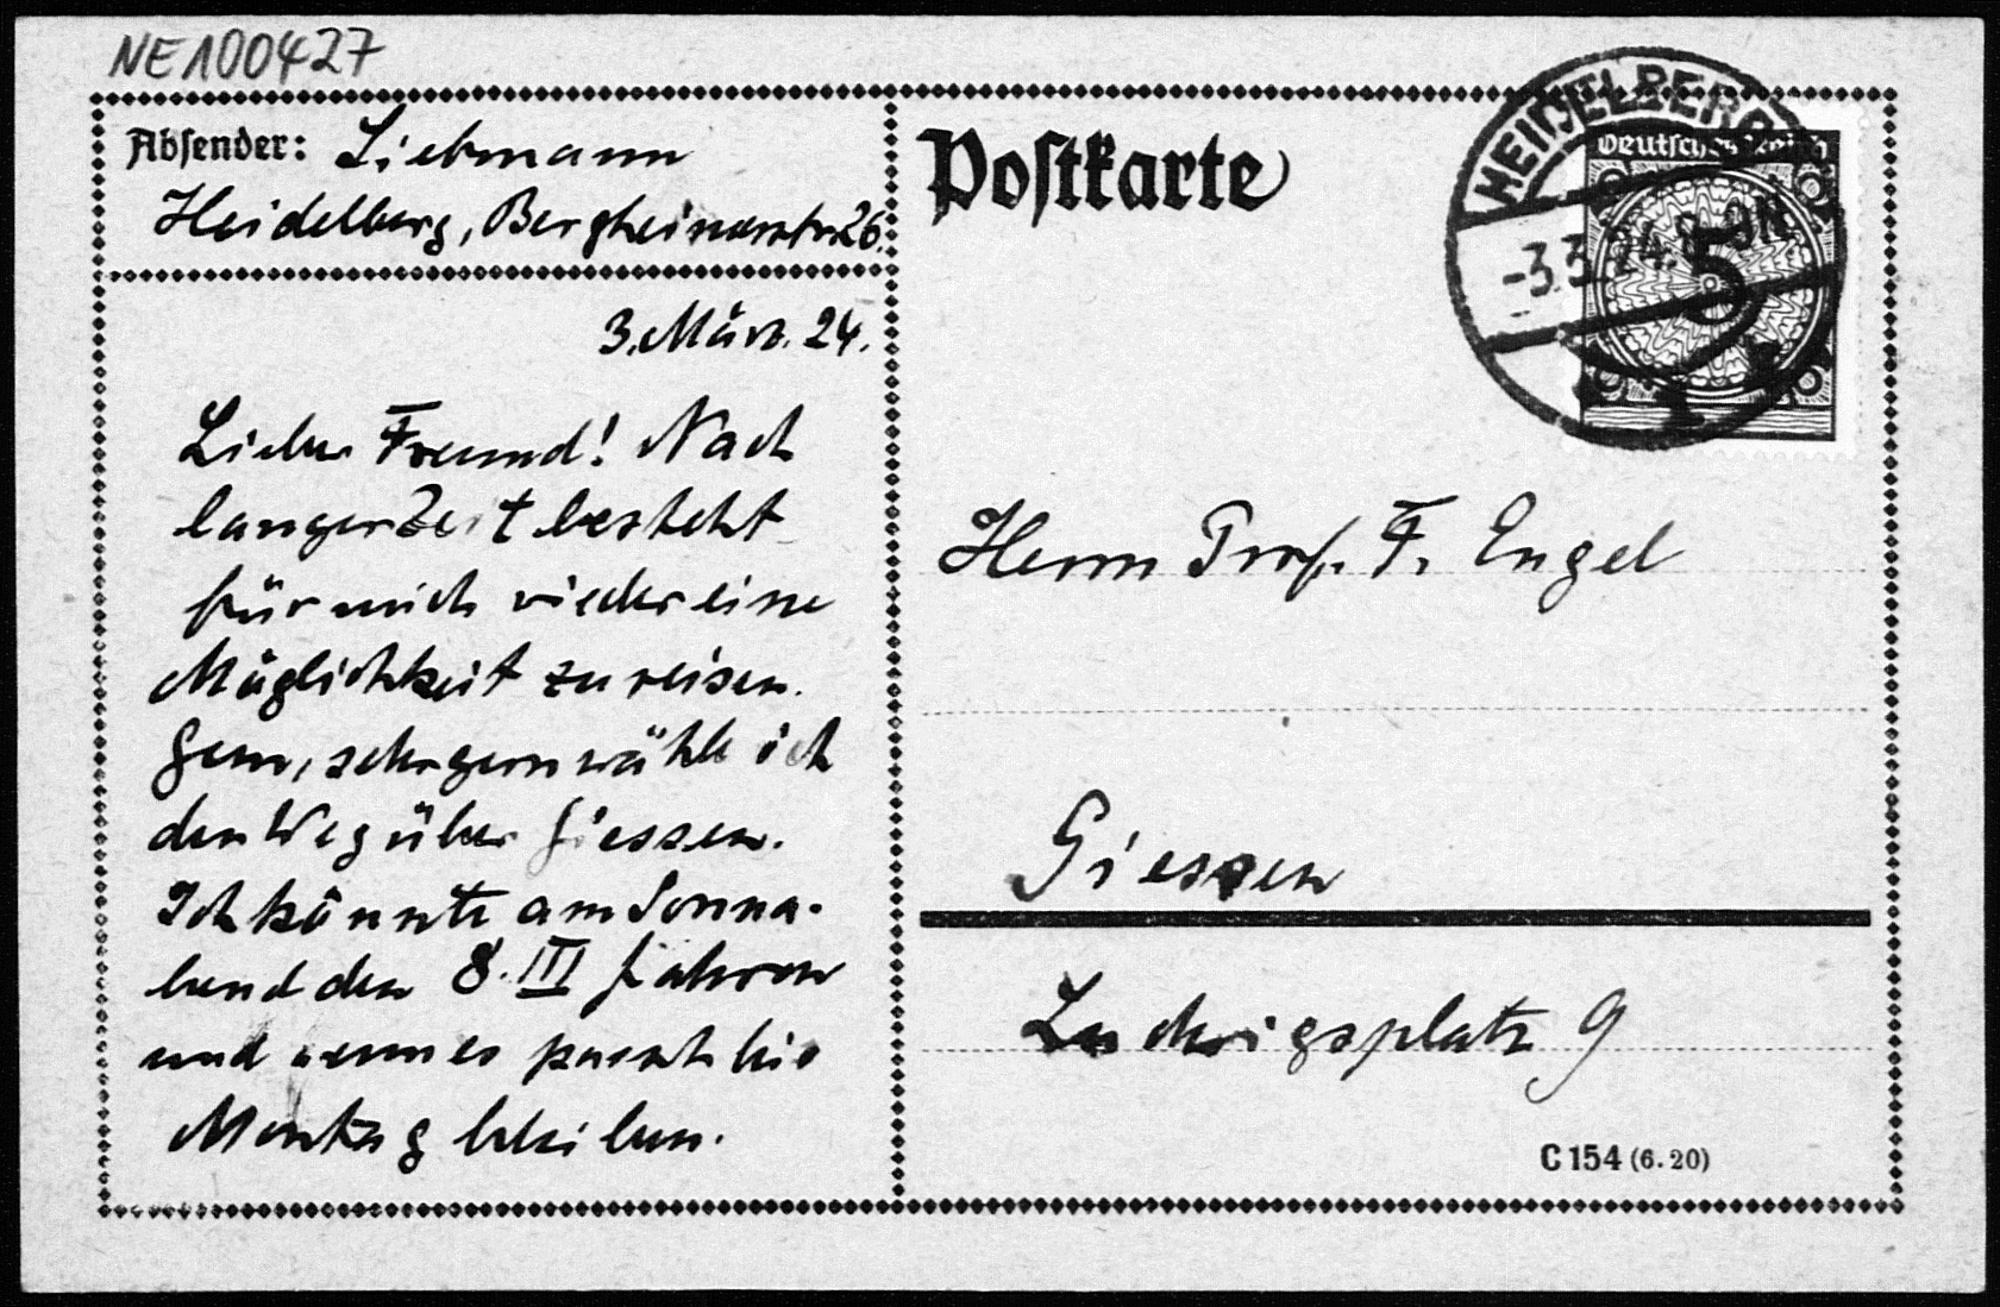 NE100427
Absender: Liebmann
Heidelberg, Bergheimerstr. 26.
3. März. 24.
Lieber Freund! Nach
langer Zeit besteht
für mich wieder eine
Möglichkeit zu reisen.
Gern, sehr gern wähle ich
den Weg über Giessen.
Ich könnte am Sonna-
bend den 8. III fahren
und wenn es passt bis
Montag bleiben.
Postkarte
HEIDELBERG
Deutsches Reich
-3.3.24. 8-9N
5
Herrn Prof. F. Engel
Giessen
Ludwigsplatz 9
C 154 (6.20)